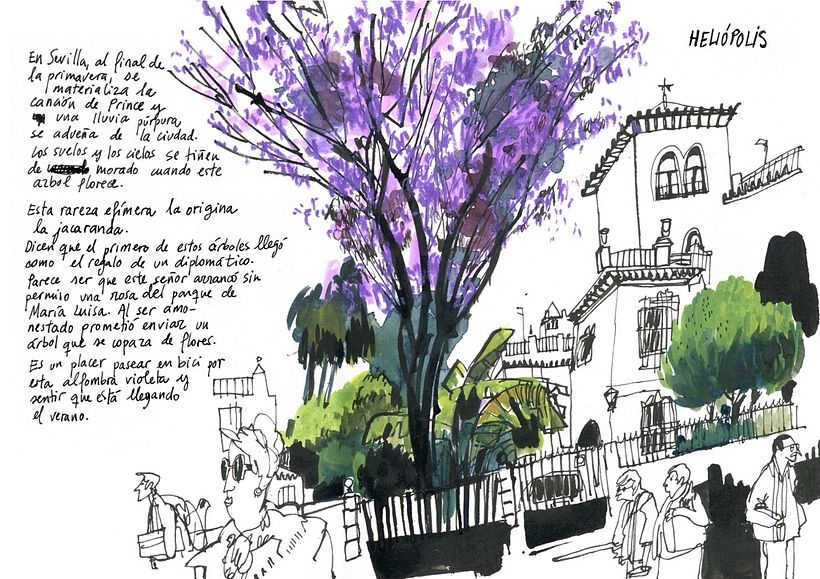 HELIÓPOLIS
En Sevilla, al final de
la primavera, se
materializa la
canción de Prince y
una lluvia púrpura
se adueña de la ciudad.
Los suelos y los cielos se tiñen
de morado cuando este
arbol florece.
Esta rareza efímera la origina
la jacaranda.
Dicen que el primero de estos árboles llegó
como el regalo de un diplomático.
Parece ser que este señor arrancó sin
permiso una rosa del parque de
María Luisa. Al ser amo-
nestado prometió enviar un
árbol que se copaza de flores.
Es un placer pasear en bici por
esta alfombra violeta y
sentir que está llegando
el verano.